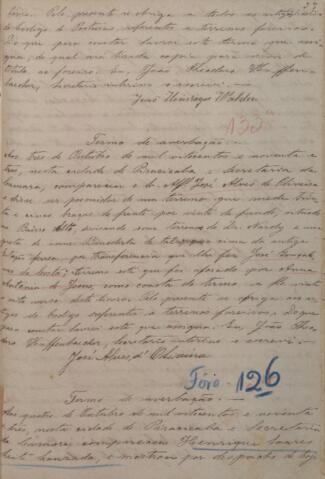 37
fôro. Pelo presente se obriga a todos os artigos
do codigo de Posturas, referentes a terrenos foreiros.
Do que para constar lavrei este termo que assi-
gna, do qual será dada copia para servir de
titulo ao foreiro. Eu, João Theodoro
secretario interino o escrevi.
José Henriques Walder
133
Termo de averbação.
Aos tres de Outubro de mil oitocentos e noventa e
tres, nesta cidade de Piracicaba e Secretaria da
Camara, compareceu o José Alves de Oliveira
e disse ser possuidor de um terreno que mede trin-
ta e cinco braças de frente por vinte de fundo, situado
no Bairro Alto, divisando com terrenos do Dr. Nardy e
de uma Benedicta de tal
por transferencia que lhe fez José
terreno este que foi aforado por Anna
Antonia de Jesus, como consta do termo a fls. vinte
e oito verso deste livro. Pelo presente se obriga aos ar-
tigos do codigo referente a terrenos foreiros. Do que
para constar lavrei este que assigna. Eu, João Theo-
doro, secretario interino o escrevi.
José Alves d'Oliveira
Fôro 126
Termo de averbação.
Aos quatro de Outubro de mil oitocentos e noventa
e tres, nesta cidade de Piracicaba e Secretaria
da Camara compareceu Henrique
e mostrou por despacho de hoje